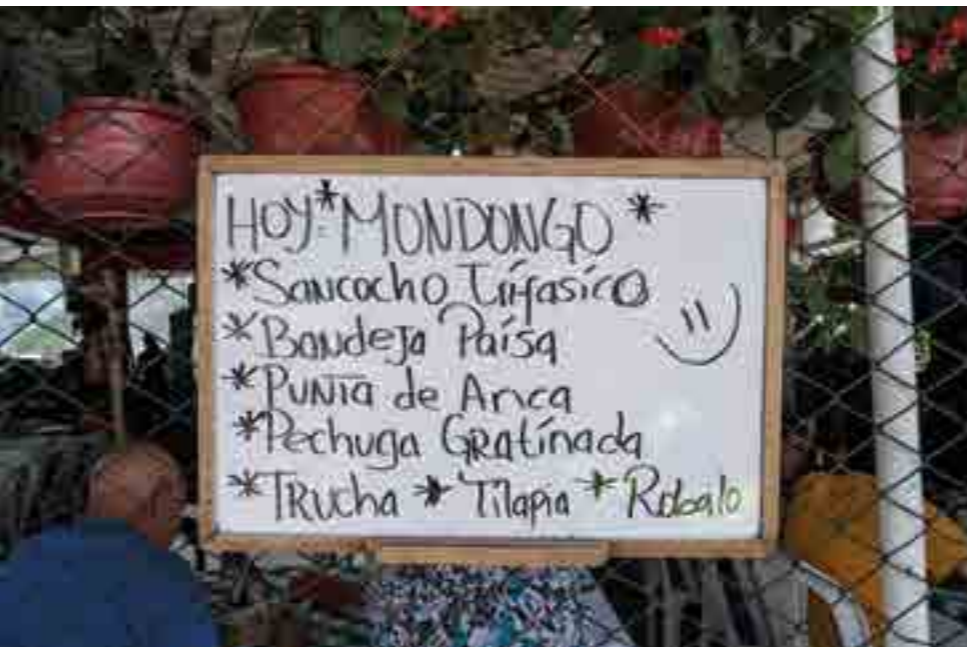 HOY=*MONDONGO*
*Sancocho Trifásico
*Bandeja Paísa
*Punta de Anca
*Pechuga Gratínada
*Trucha * Tilapia * Robalo